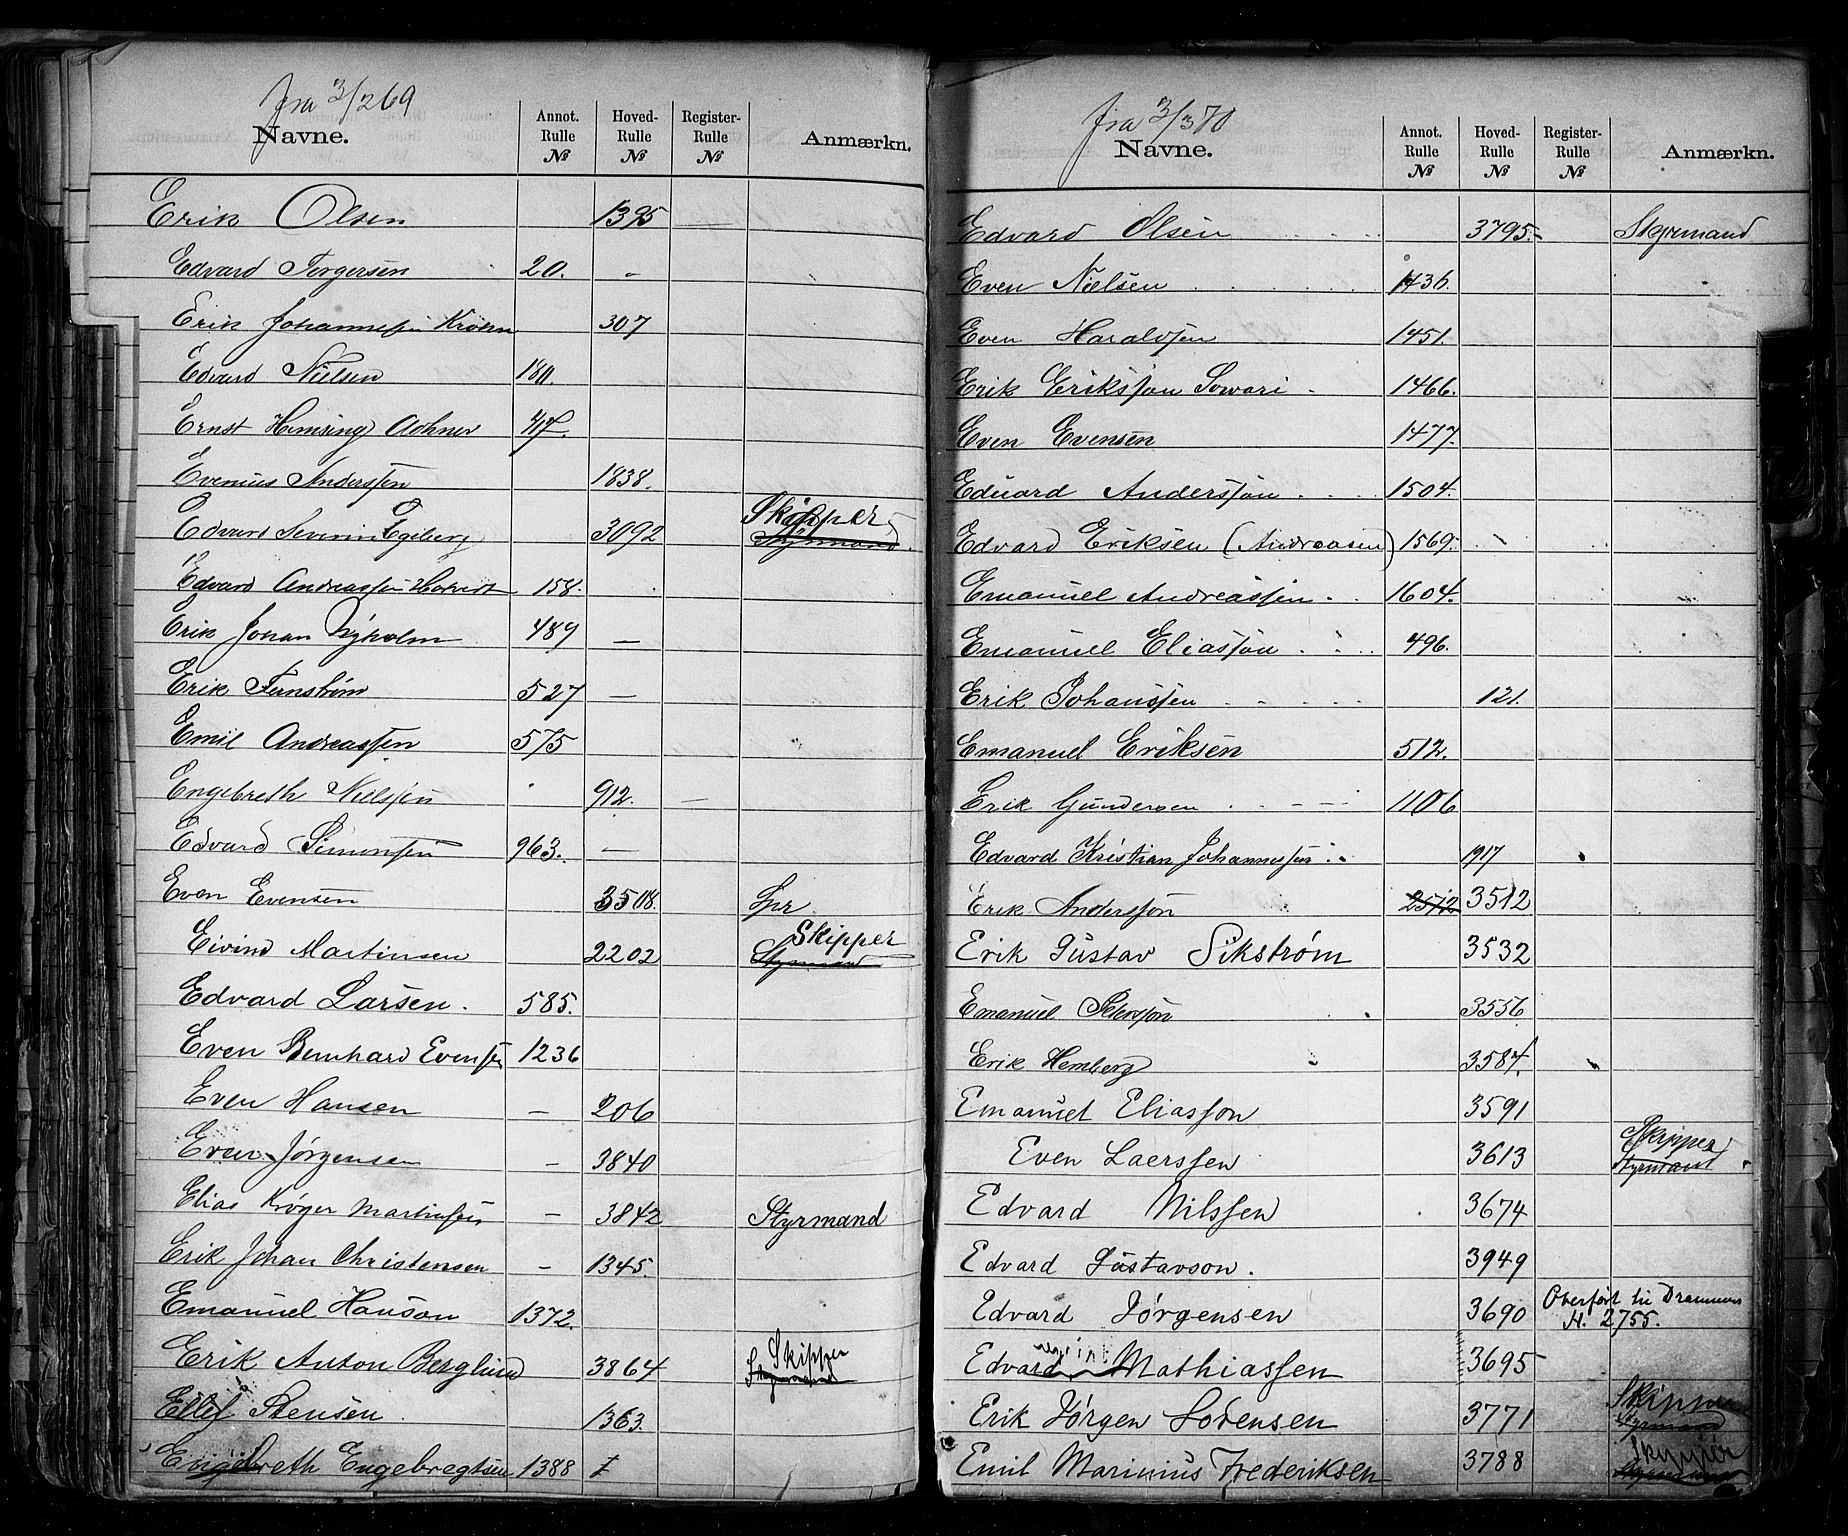 fra 3/269
Navne. Annot. Rulle № Hoved-Rulle № Register-Rulle № Anmærkn.
Erik Olsen 1395 —
Edvard Torgersen 20. -
Erik Johannessen Krohn 307
Edvard Nielsen 180.
Ernst Hemsing Achner 417.
Evenius Anderssen 1838.
Edvard Severin Egeberg 3092 Skipper Styrmand.
Edvard Andreassen Horvedt 158.
Erik Johan Nyholm 489 —
Erik Fernstrøm 527 —
Emil Andreassen 575
Engebreth Nielssen 912. —
Edvard Simonsen 963. —
Even Evensen 3508.
Eivind Martinsen 2202 Skipper Styrmand
Edvard Larsen. 585.
Even Bernhard Evensen 1236
Even Hansen — 206
Even Jørgensen — 3840
Elias Krøger Martinsen — 3842 Styrmand
Erik Johan Christensen — 1345.
Emanuel Hanson 1372.
Erik Anton Berglund 3864 Skipper Styrmand
Ellef Stensen 1363.
Engebreth Engebregtsen 1388
fra 3/370
Navne. Annot. Rulle № Hoved-Rulle № Register-Rulle № Anmærkn.
Edvard Olsen 3795.- Styrmand
Even Nielsen 1436.
Even Haraldsen 1451.
Erik Eriksson Sowari 1466.
Even Evensen 1477.
Eduard Andersson 1504.
Edvard Eriksen (Andreasen) 1569.
Emanuel Andreassen 1604.
Emanuel Eliasson 496.
Erik Johanssen 121.
Emanuel Eriksen 512.
Erik Gundersen 1106
Edvard Kristian Johannessen 1917
Erik Andersson 2512 3512
Erik Gustav Sikstrøm 3532
Emanuel Petersson 3556
Erik Hemberg 3584.
Emanuel Eliasson 3591
Even Laerssen 3613 Skipper Styrmand
Edvard Nilssen 3674
Edvard Gustavson. 3949
Edvard Jørgensen 3690 Overført til Drammen H. 2755.
Edvard Mathiassen 3695
Erik Jørgen Sørensen 3771 Skipper Styrmand
Emil Marinius Frederiksen 3788 Skipper Styrmand